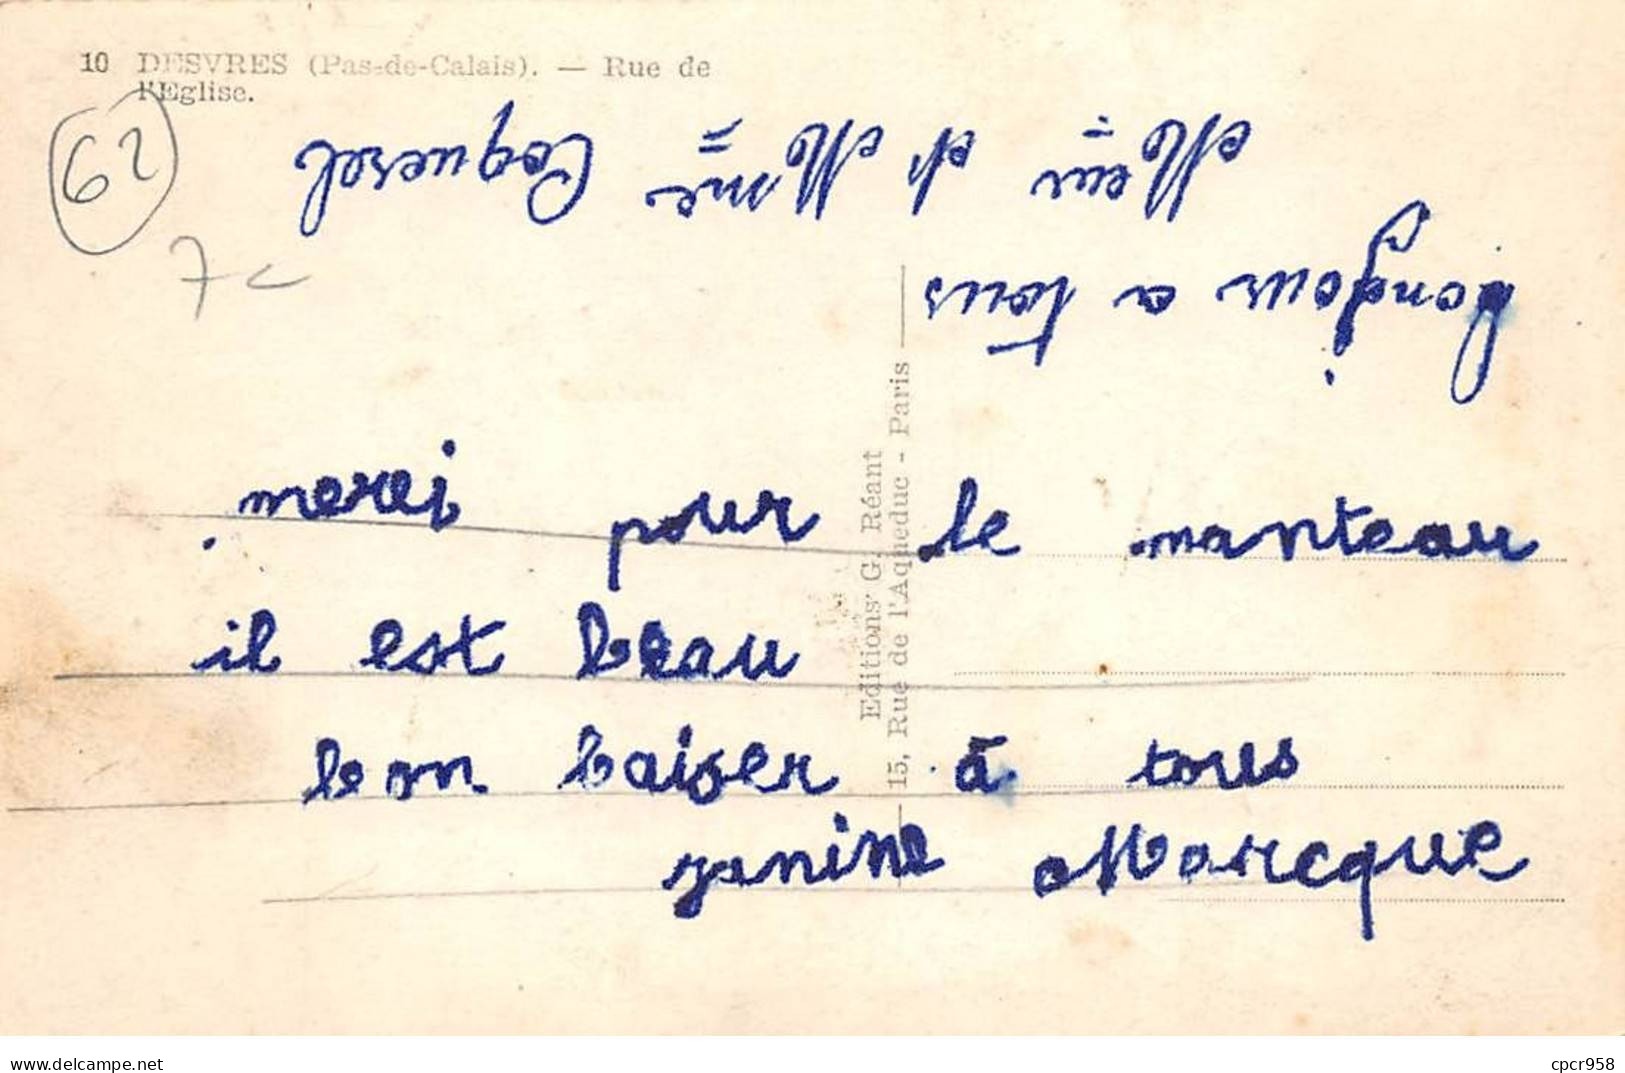 10 DESVRES (Pas-de-Calais). — Rue de
l'Eglise.
62
7
bonjour a tous
Meur et Mme Coquerel
Editions G. Réant
15, Rue de l'Aqueduc - Paris
merci pour le manteau
il est beau
bon baiser à tous
janine Marcque
www.delcampe.net
cpcr958